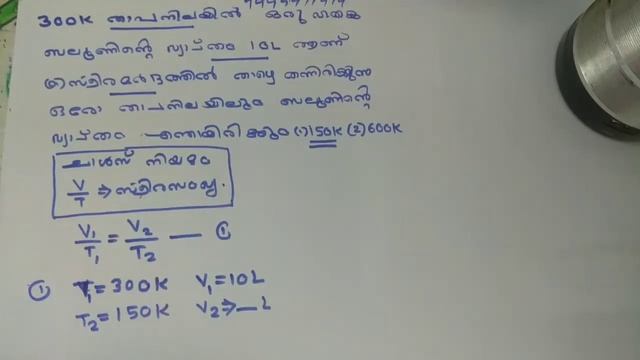 300K താപനിലയിൽ ഒരു വാതക
ബലൂണിന്റെ വ്യാപ്തം 10L ആണ്
സ്ഥിരമർദ്ദത്തിൽ താഴെ തന്നിരിക്കുന്ന
ഓരോ താപനിലയിലും ബലൂണിന്റെ
വ്യാപ്തം എന്തായിരിക്കും (1) 150K (2) 600K
ചാൾസ് നിയമം
V/T ⇒ സ്ഥിരസംഖ്യ.
V₁/T₁ = V₂/T₂ — ①
① T₁ = 300K V₁ = 10L
T₂ = 150K V₂ ⇒ __ L